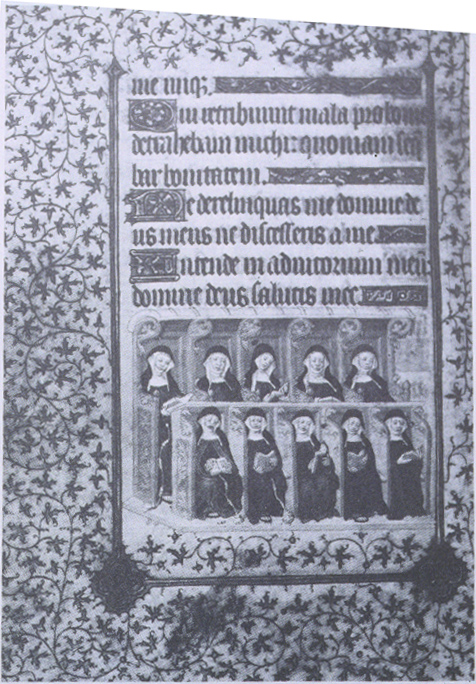 me iniq;
Qui retribuunt mala pro bonis
detrahebant michi: quoniam seq
bar bonitatem.
Ne derelinquas me domine de
us meus ne discesseris a me.
Intende in adiutorium meu
domine deus salutis mee.